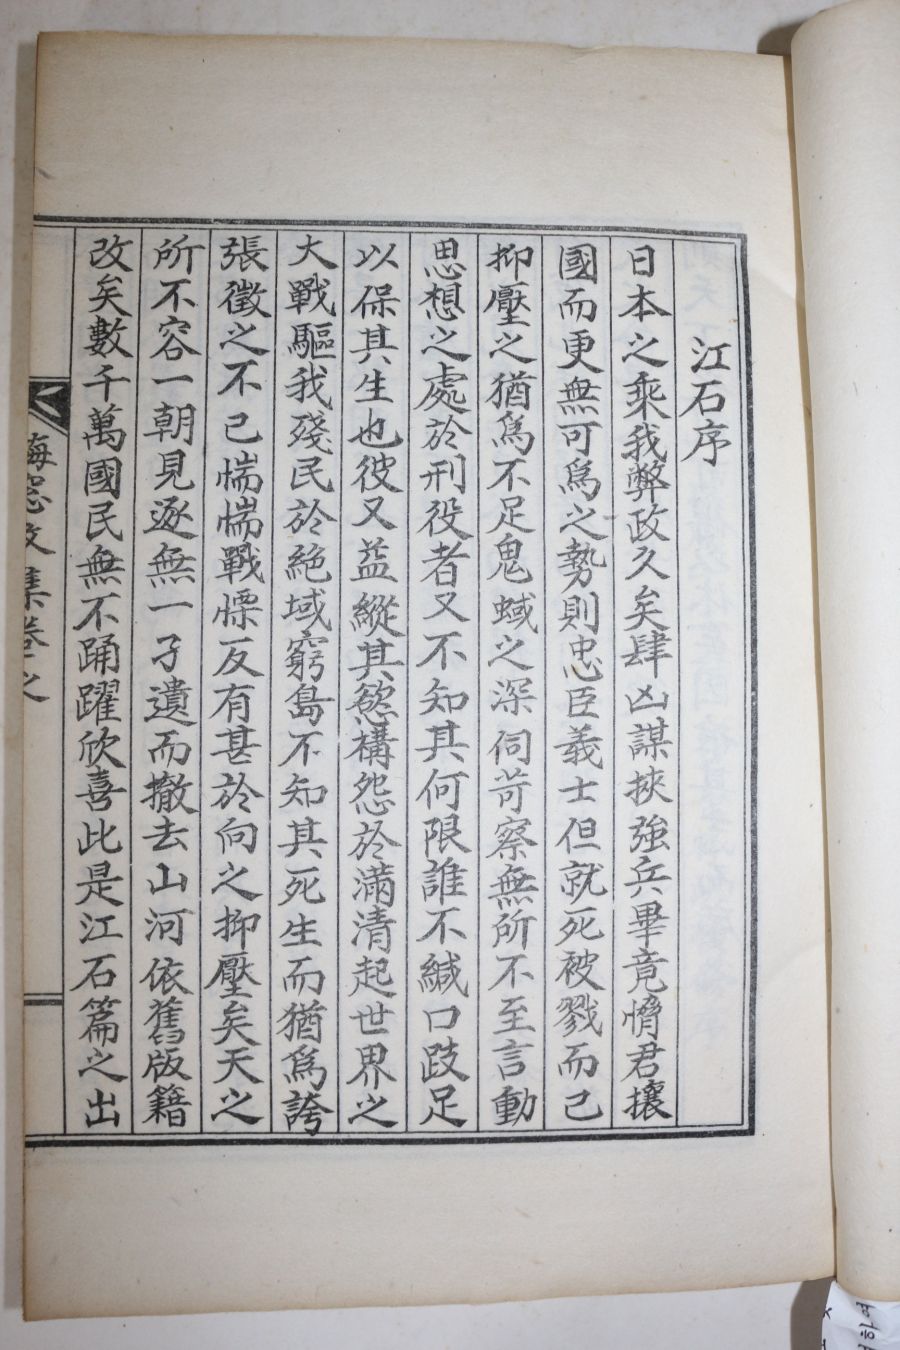 江石序
日本之乘我弊政久矣肆凶謀挾強兵畢竟憎君攘
國而更無可爲之勢則忠臣義士但就死被戮而己
抑壓之猶爲不足鬼蜮之深伺苛察無所不至言動
思想之處於刑役者又不知其何限誰不緘口跂足
以保其生也彼又益縱其慾構怨於滿清起世界之
大戰驅我殘民於絶域窮島不知其死生而猶爲誇
張徵之不己惴惴戰慄反有甚於向之抑壓矣天之
所不容一朝見逐無一孑遺而撤去山河依舊版籍
改矣數千萬國民無不踊躍欣喜此是江石篇之出
集卷之